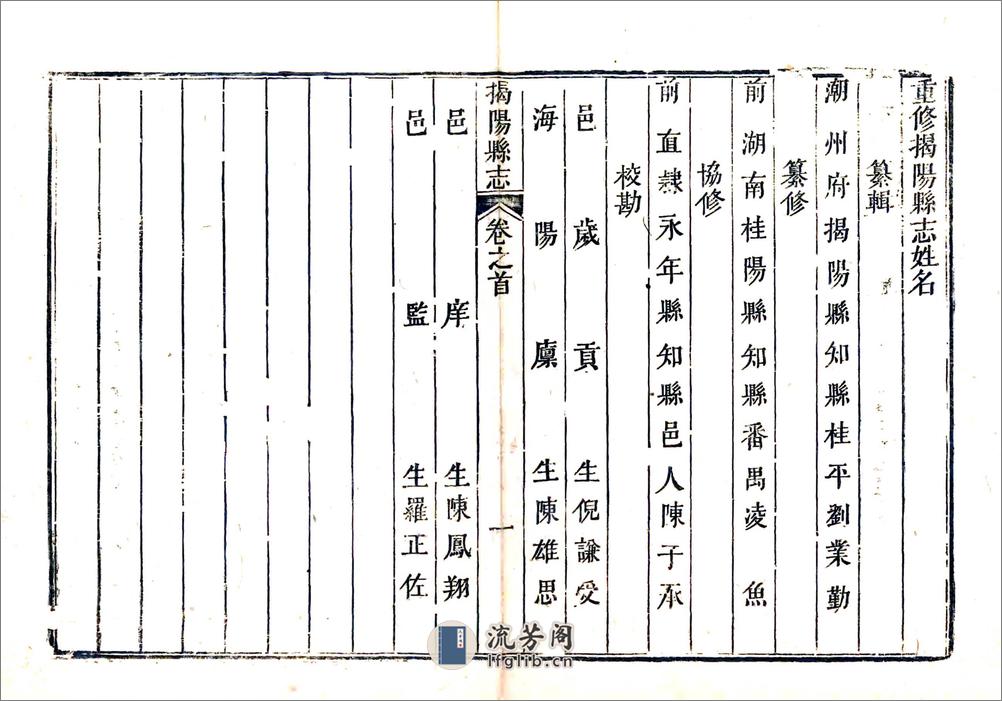 重修揭陽縣志姓名
纂輯
潮州府揭陽縣知縣桂平劉業勤
纂修
前湖南桂陽縣知縣番禺凌魚
協修
前直隸永年縣知縣邑人陳子承
校勘
邑歲貢生倪謙受
海陽廩生陳雄思
揭陽縣志 卷之首 一
邑庠生陳鳳翔
邑監生羅正佐
流芳阁
lfglib.cn